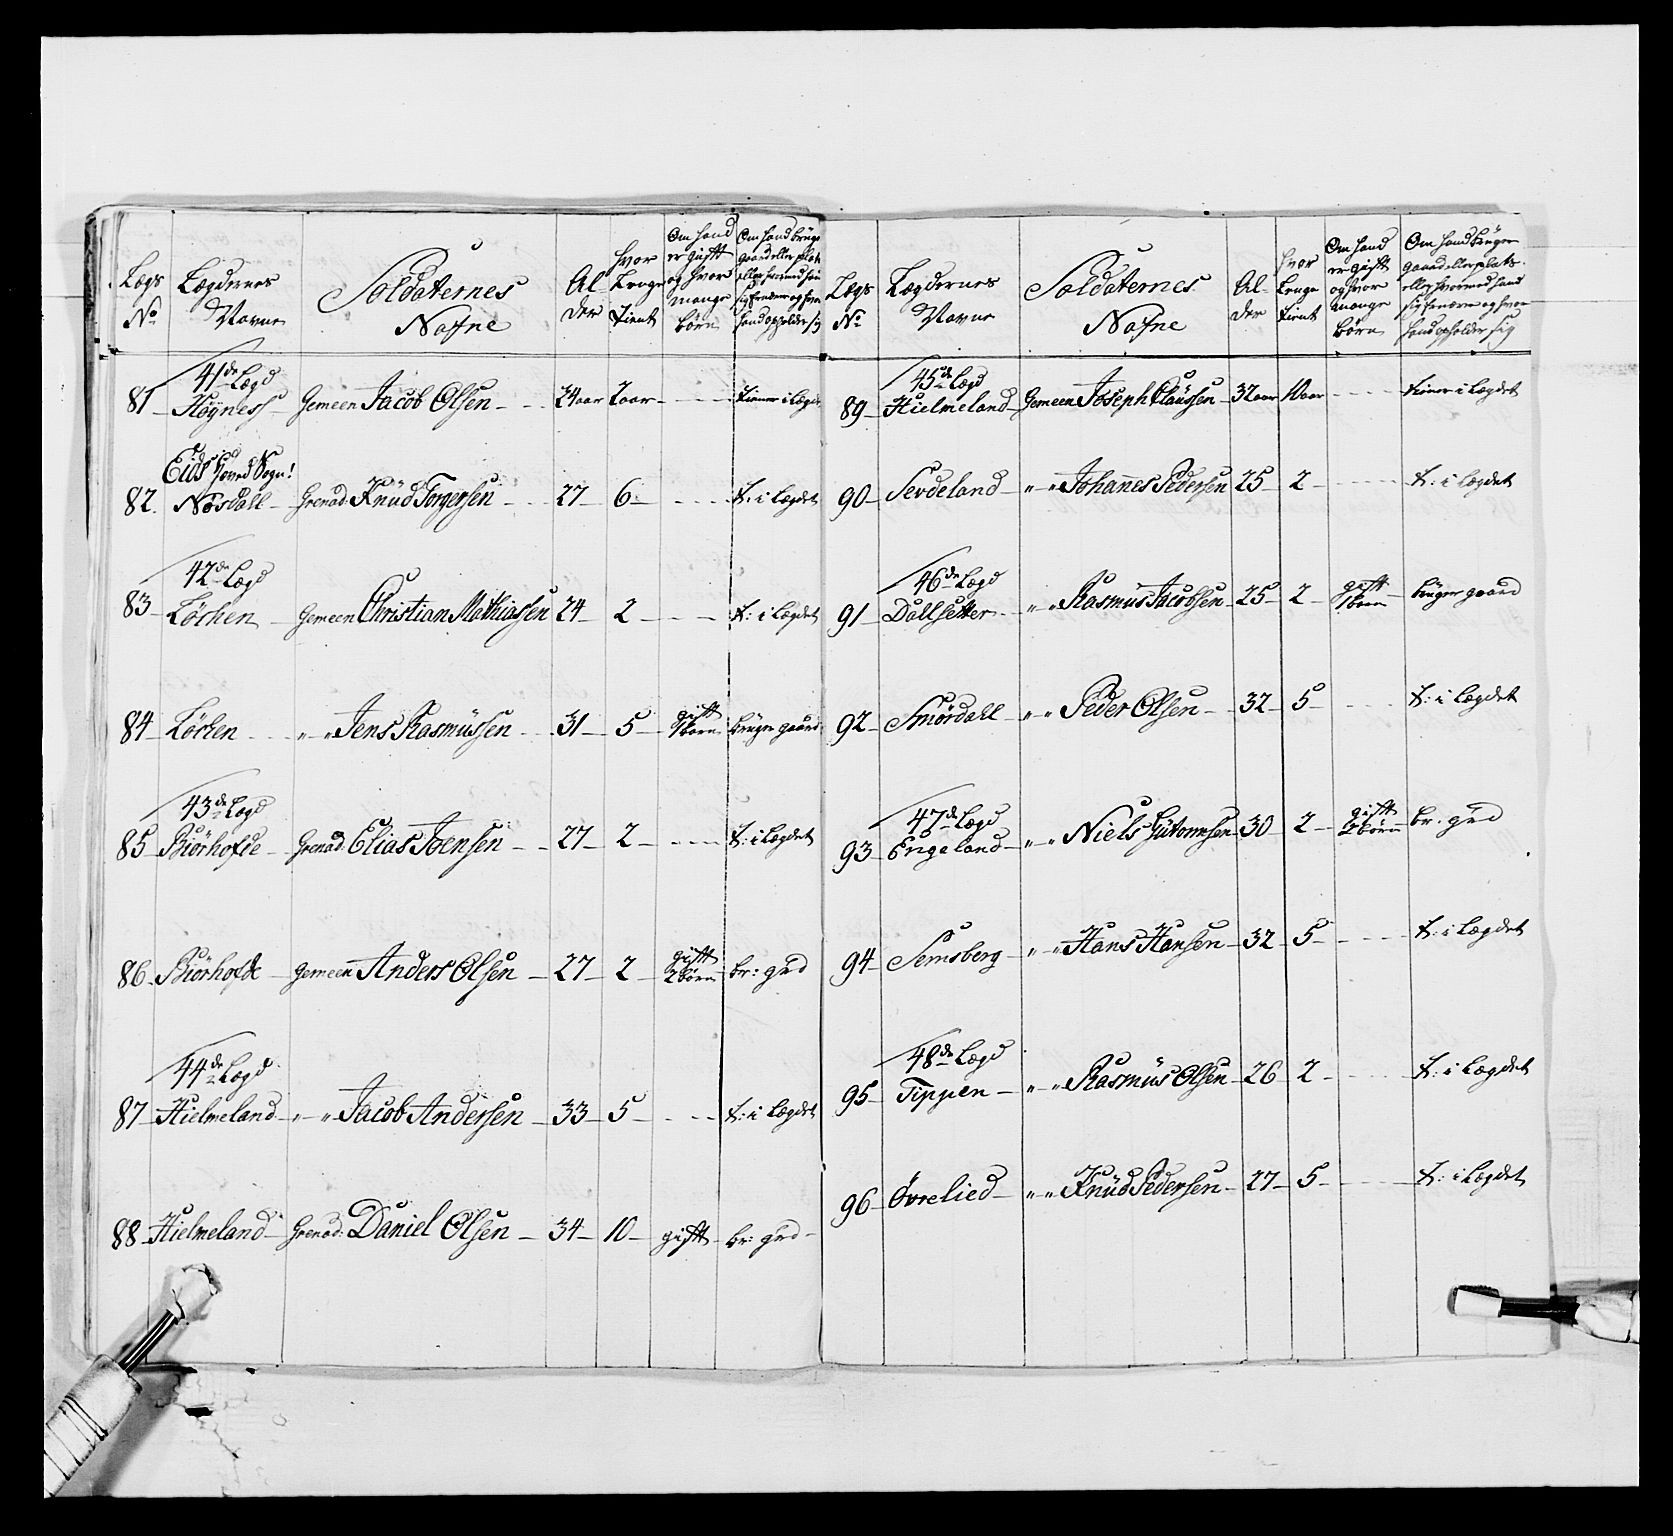 Lægs No | Lægdernes Navne | Soldaternes Nafne | Alder | hvor Lenge tient | Om hand er gift og hvor mange børn | Om hand bruger gaard eller plads eller hvormed hand sig Ernærer og hvor hand opholder sig
41de Lægd
81 – Høyness – Gemeen Jacob Olsen – 24 aar 2 aar – – – tiener i Lægdet
Eids hoved Sogn!
82. Nosdall – Grenad: Knud Torgersen – 27 – 6 – – – t: i Lægdet
42de Lægd
83 – Løchen – Gemeen Christian Mathiassen 24 – 2 – – – t: i Lægdet
84 – Løchen – „ – „ Jens Rasmüssen – 31 – 5 – gift 1 barn bruger gaard
43de Lægd
85 – Biørhofde – Grenad: Elias Joensen – 27 – 2 – – – t: i Lægdet
86. Biørhofde – Gemeen Anders Olsen – 27 – 2 – gift 2 børn br: grd
44de Lægd
87 – Hielmeland – „ – „ Jacob Andersen – 33 – 5 – – – t: i Lægdet
88 – Hielmeland – Grenad: Daniel Olsen – 34 – 10 – gift – br: grd –
Lægs No | Lægdernes Navne | Soldaternes Nafne | Alder | hvor Lenge tient | Om hand er gift og hvor mange børn | Om hand bruger gaard eller plads eller hvormed hand sig Ernærer og hvor hand opholder sig
45de Lægd
89 – Hielmeland – Gemeen Joseph Claüssen – 32 aar 10 aar – – – tiener i Lægdet
90 – Serdeland – „ – „ Johannes Pedersen 25 – 2 – – – t: i Lægdet
46de Lægd
91 – Dallsetter – „ – „ Rasmus Jacobsen – 25 – 2 – gift 1 barn – bruger gaard
92 – Smørdall – „ – „ Peder Olsen – 32 – 5 – – – t: i Lægdet
47de Lægd
93 – Engeland – „ – „ Niels Gutormsen – 30 – 2 – gift 2 børn br. grd
94 – Semsberg – „ – „ Hans Hansen – 32 – 5 – – – t: i Lægdet
48de Lægd
95 – Tippen – „ – „ Rasmüs Olsen – 26 – 2 – – – t: i Lægdet
96 – Øvrelied – „ – „ Knüd Pedersen – 27 – 5 – – – t: i Lægdet